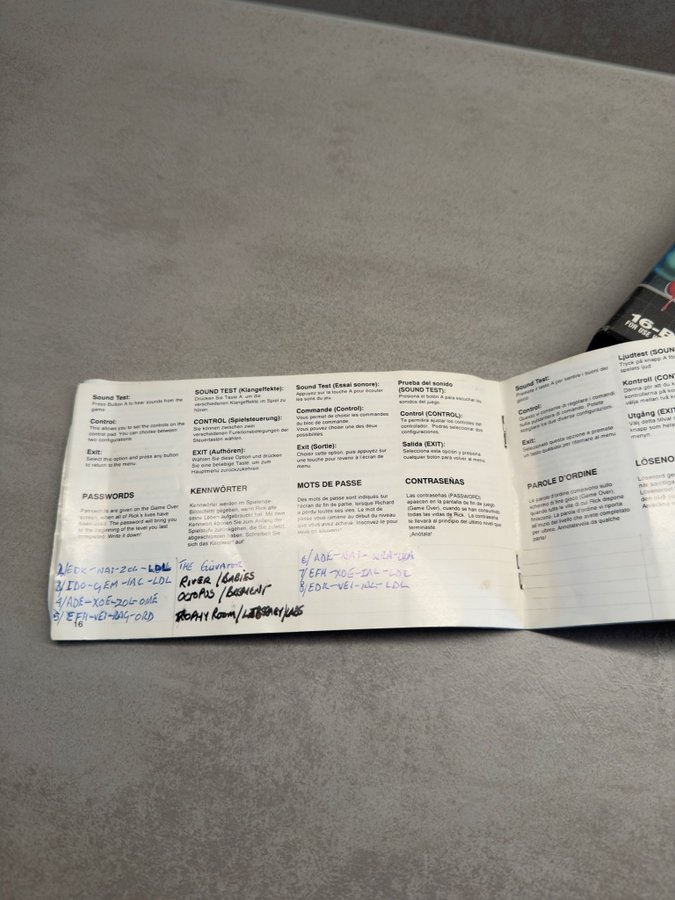 Sound Test:
Press Button A to hear sounds from the
game
Control:
This allows you to set the controls on the
control pad. You can choose between
two configurations.
Exit:
Select this option and press any button
to return to the menu.
PASSWORDS
Passwords are given on the Game Over
screen, when all of Rick's lives have
been used. The password will bring you
to the beginning of the level you last
completed. Write it down!
SOUND TEST (Klangeffekte):
Drücken Sie Taste A, um die
verschiedenen Klangeffekte im Spiel zu
hören.
CONTROL (Spielsteuerung):
Sie können zwischen zwei
verschiedenen Funktionsbelegungen der
Steuertasten wählen.
EXIT (Aufhören):
Wählen Sie diese Option und drücken
Sie eine beliebige Taste, um zum
Hauptmenü zurückzukehren.
KENNWÖRTER
Kennwörter werden im Spielende-
Bildschirm gegeben, wenn Rick alle
seine Leben aufgebraucht hat. Mit dem
Kennwort können Sie zum Anfang der
Spielstufe zurückgehen, die Sie zuletzt
abgeschlossen haben. Schreiben Sie
sich das Kennwort auf!
Sound Test (Essai sonore):
Appuyez sur la touche A pour écouter
les sons du jeu.
Commande (Control):
Vous permet de choisir les commandes
du bloc de commande.
Vous pouvez choisir une des deux
possibilités.
Exit (Sortie):
Choisir cette option, puis appuyez sur
une touche pour revenir à l'écran de
menu.
MOTS DE PASSE
Des mots de passe sont indiqués sur
l'écran de fin de partie, lorsque Richard
a perdu toutes ses vies. Le mot de
passe vous ramène au début du niveau
que vous avez achevé. Inscrivez-le pour
vous en souvenir!
Prueba del sonido
(SOUND TEST):
Presiona el botón A para escuchar los
sonidos del juego.
Control (CONTROL):
Te permite ajustar los controles del
controlador. Podrás seleccionar dos
configuraciones.
Salida (EXIT):
Selecciona esta opción y presiona
cualquier botón para volver al menú.
CONTRASEÑAS
Las contraseñas (PASSWORD)
aparecen en la pantalla de fin de juego
(Game Over), cuando se han consumido
todas las vidas de Rick. La contraseña
te llevará al principio del último nivel que
terminaste.
¡Anótala!
2/EDK-NAI-ZOL-LDL THE ELEVATOR
3/IDO-GEM-IAC-LDL RIVER/BABIES
4/ADE-XOE-ZOL-OME OCTOPUS/
5/EFH-VEI-RAG-ORD TROPHY ROOM/LIBRARY/LABS
6/ADE-NAI-
7/EFH-XOE-IAL-LDL
8/EDK-VEI-
16
Sound Test:
Premete il tasto A per sentire i suoni del
gioco.
Control:
Questo permette di regolare i comandi
sulla pulsantiera di comando. Potete
scegliere tra due diverse configurazioni.
Exit:
Selezionate questa opzione e premete
un tasto qualsiasi per ritornare al menu.
PAROLE D'ORDINE
Le parole d'ordine compaiono sullo
schermo di fine gioco (Game Over),
quando tutte le vita di cui Rick dispone
finiscono. La parola d'ordine vi riporta
all'inizio del livello che avete completato
per ultimo. Annotatevela da qualche
parte!
Ljudtest (SOUN
Tryck på knapp A för
spelets ljud.
Kontroll (CON
Denna gör att du k
kontrollerna på kon
välja mellan två ko
Utgång (EXIT
Välj detta
knapp som hels
menyn.
LÖSENO
16-B
FOR USE